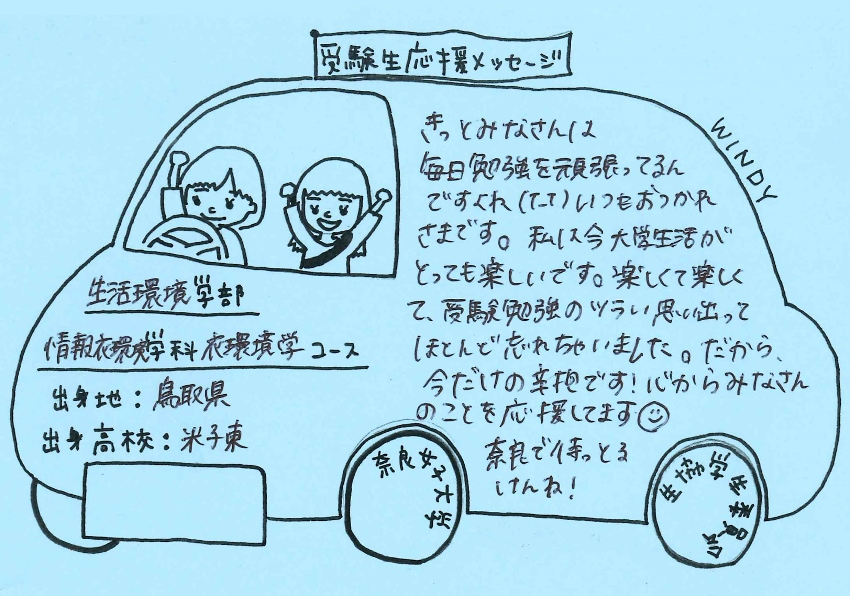 受験生応援メッセージ
WINDY
きっとみなさんは
毎日勉強を頑張ってるん
ですよね(T-T)いつもおつかれ
さまです。私は今大学生活が
とっても楽しいです。楽しくて楽しく
て、受験勉強のツラい思い出って
ほとんど忘れちゃいました。だから、
今だけの辛抱です!心からみなさん
のことを応援してます☺
奈良で待っとる
けんね!
生活環境学部
情報衣環境学科衣環境学コース
出身地:鳥取県
出身高校:米子東
奈良女子大学
生協学生委員会